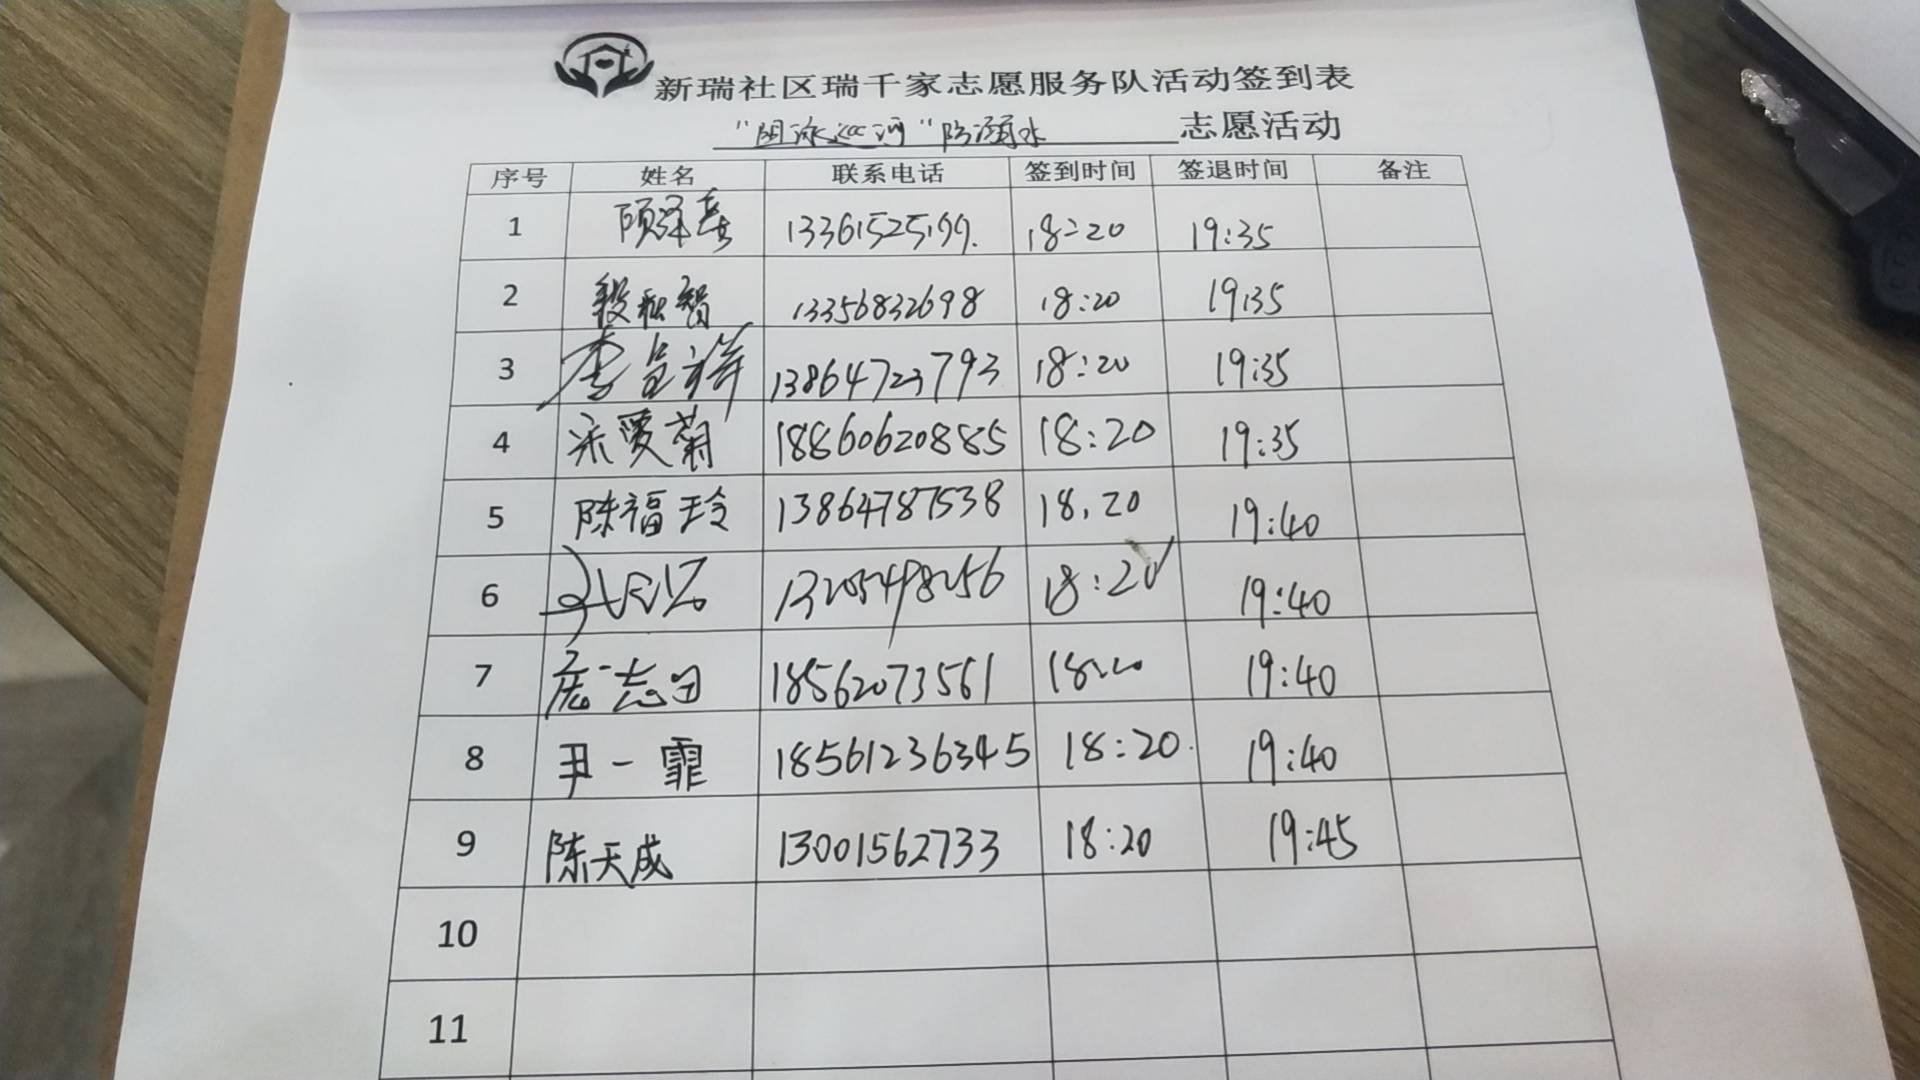 新瑞社区瑞千家志愿服务队活动签到表
"阻泳巡河"防溺水 志愿活动
序号 姓名 联系电话 签到时间 签退时间 备注
1 顾泽喜 13361525199. 18:20 19:35
2 13356832698 18:20 19:35
3 李呈祥 13864723793 18:20 19:35
4 宋爱菊 18860620885 18:20 19:35
5 陈福玲 13864787538 18.20 19:40
6 13205498256 18:20 19:40
7 庞志田 18562073561 18:20 19:40
8 尹一霏 18561236345 18:20. 19:40
9 陈天成 13001562733 18:20 19:45
10
11